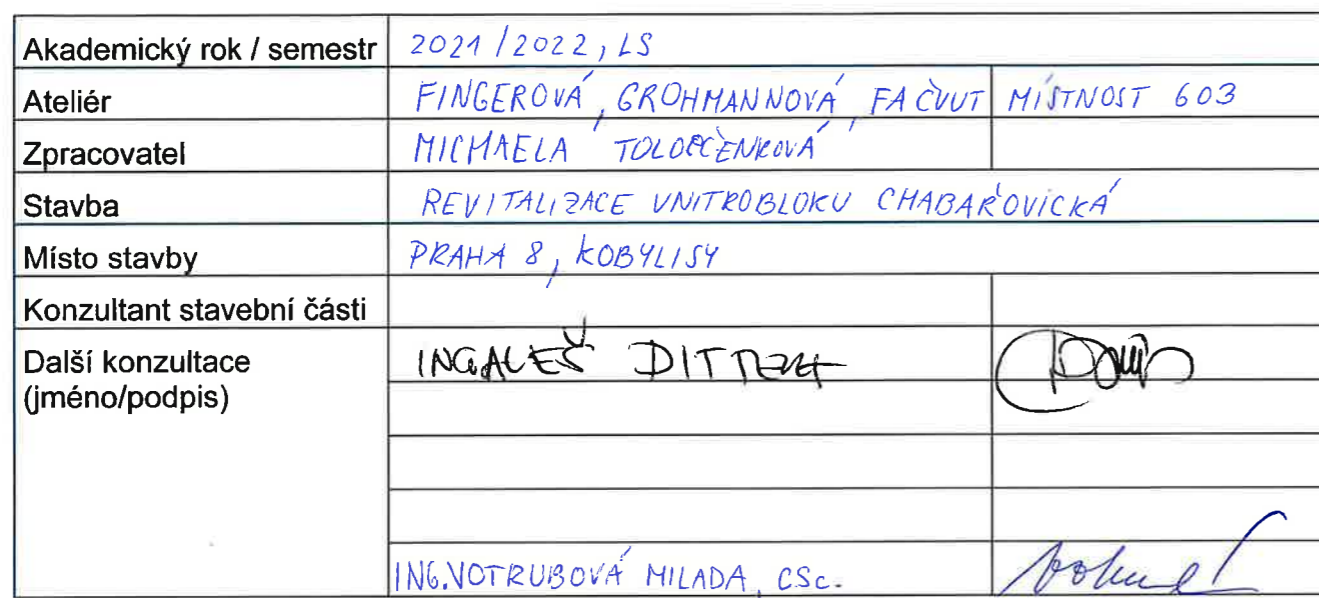 Akademický rok / semestr 2021/2022, LS
Ateliér FINGEROVÁ, GROHMANNOVÁ, FA ČVUT MÍSTNOST 603
Zpracovatel MICHAELA TOLOPČENKOVÁ
Stavba REVITALIZACE VNITROBLOKU CHABAŘOVICKÁ
Místo stavby PRAHA 8, KOBYLISY
Konzultant stavební části
Další konzultace ING. ALEŠ
(jméno/podpis)
ING. VOTRUBOVÁ MILADA, CSc.